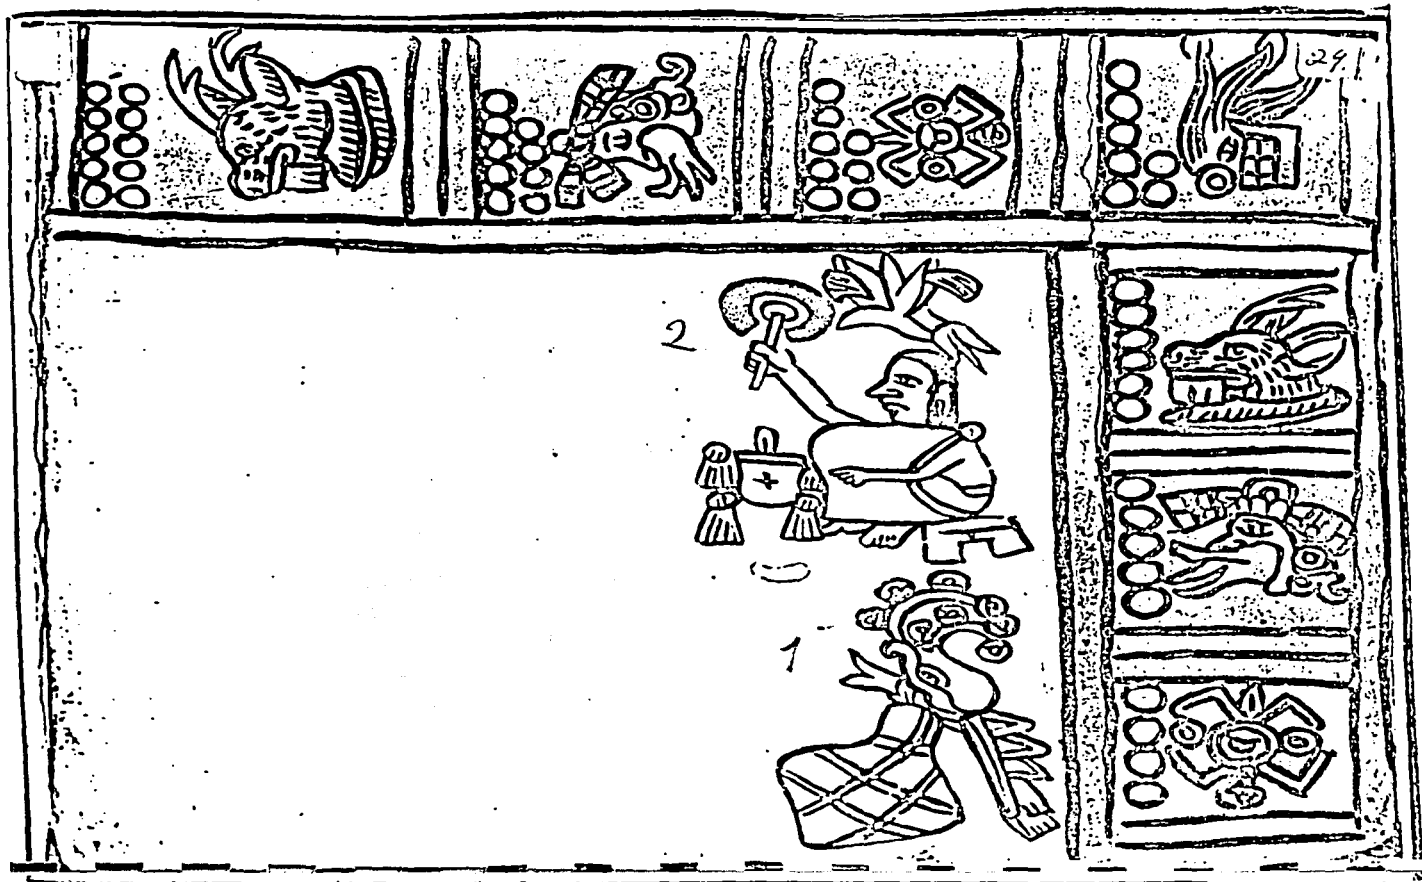 29.
2
1